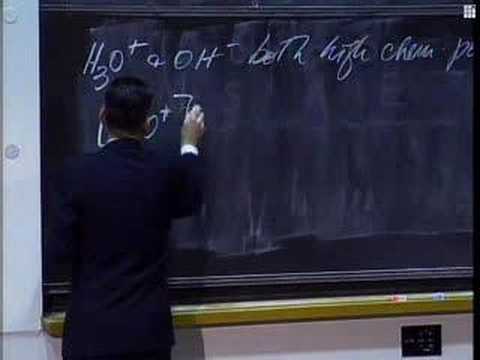 H₃O⁺ & OH⁻ both high chem. p
[ O⁺ 7